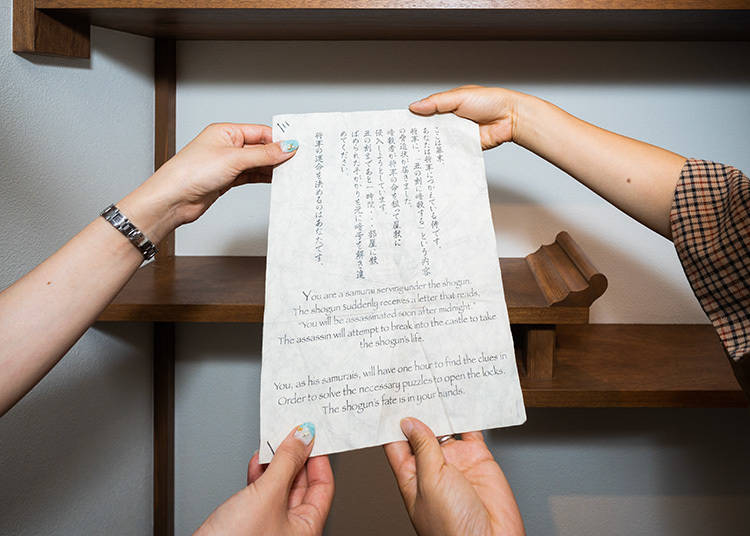 ここは幕末。
あなたは将軍につかえている侍です。
将軍に、「丑の刻に暗殺する」という内容
の脅迫状が届きました。
暗殺者が将軍の命を狙って屋敷に
侵入しようとしています。
丑の刻まであと一時間・・部屋に散
ばめられた手がかりを元に暗号を解き進
めてください。
将軍の運命を決めるのはあなたです。
You are a samurai serving under the shogun.
The shogun suddenly receives a letter that reads,
"You will be assassinated soon after midnight."
The assassin will attempt to break into the castle to take
the shogun's life.
You, as his samurais, will have one hour to find the clues in
Order to solve the necessary puzzles to open the locks.
The shogun's fate is in your hands.